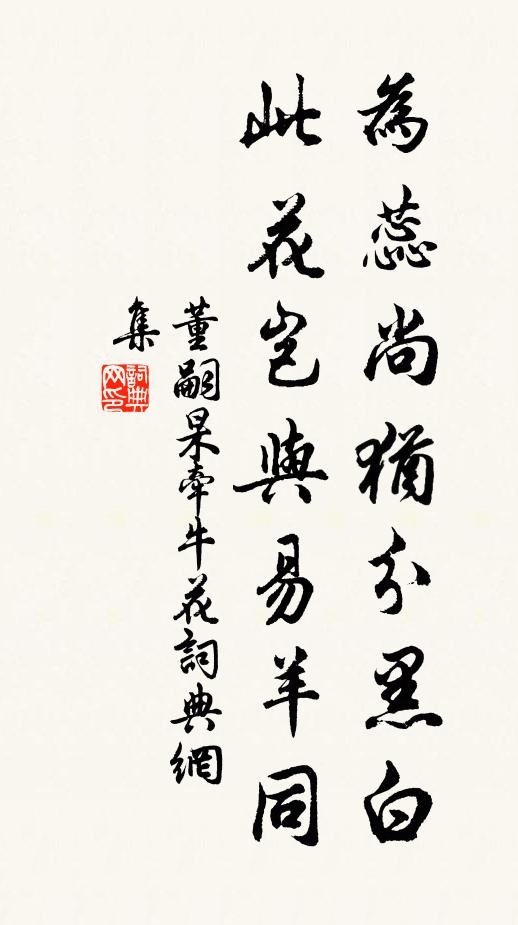 為蕊尚猶分黑白
此花豈與易羊同
董嗣杲牽牛花詞典網
集
詞典網印